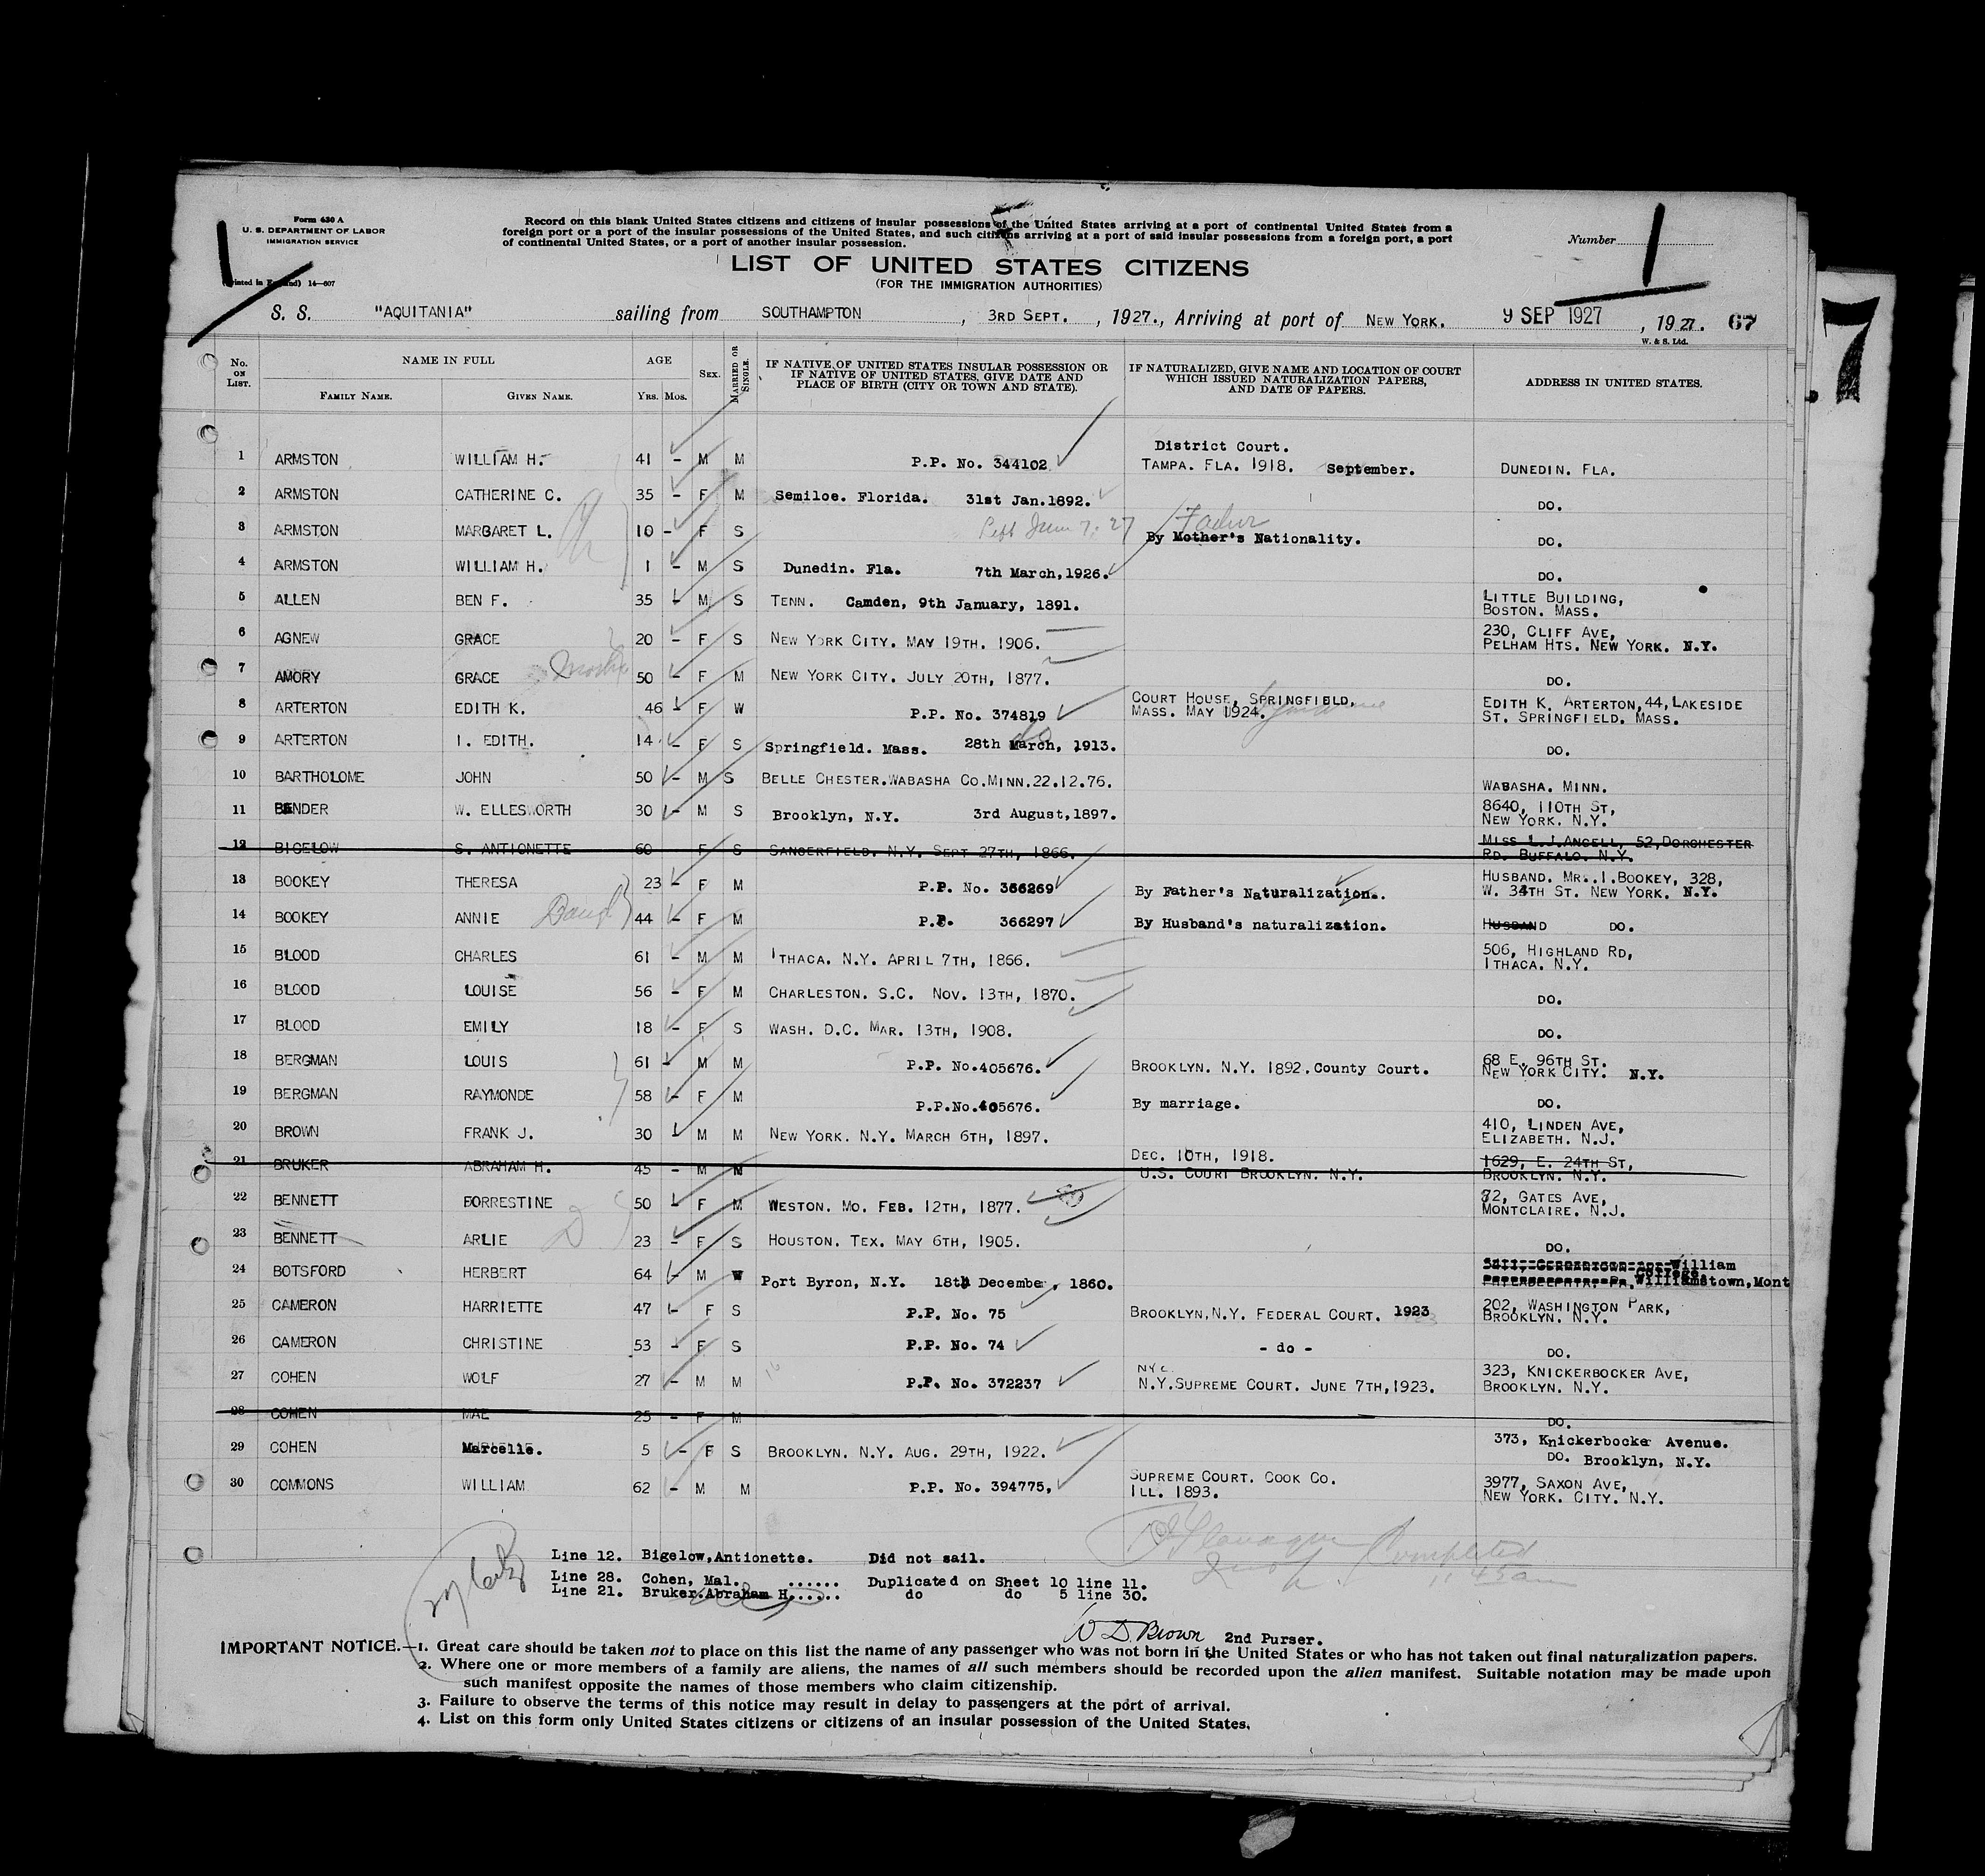 Form 630 A
U. S. DEPARTMENT OF LABOR
IMMIGRATION SERVICE
(Printed in England) 14—607
Record on this blank United States citizens and citizens of insular possessions of the United States arriving at a port of continental United States from a
foreign port or a port of the insular possessions of the United States, and such citizens arriving at a port of said insular possessions from a foreign port, a port
of continental United States, or a port of another insular possession.
Number 1
LIST OF UNITED STATES CITIZENS
(FOR THE IMMIGRATION AUTHORITIES)
S. S. "AQUITANIA" sailing from SOUTHAMPTON, 3RD SEPT., 1927., Arriving at port of NEW YORK. 9 SEP 1927, 1927. 67
W. & S. Ltd.
7
No. ON LIST. NAME IN FULL FAMILY NAME. GIVEN NAME. AGE YRS. MOS. SEX. MARRIED OR SINGLE. IF NATIVE OF UNITED STATES INSULAR POSSESSION OR IF NATIVE OF UNITED STATES, GIVE DATE AND PLACE OF BIRTH (CITY OR TOWN AND STATE). IF NATURALIZED, GIVE NAME AND LOCATION OF COURT WHICH ISSUED NATURALIZATION PAPERS, AND DATE OF PAPERS. ADDRESS IN UNITED STATES.
1 ARMSTON WILLIAM H. 41 - M M P.P. No. 344102 District Court. TAMPA. FLA. 1918. September. DUNEDIN. FLA.
2 ARMSTON CATHERINE C. 35 - F M Semiloe. Florida. 31st Jan.1892. DO.
3 ARMSTON MARGARET L. 10 - F S By Mother's Nationality. DO.
4 ARMSTON WILLIAM H. 1 - M S Dunedin. Fla. 7th March,1926. DO.
5 ALLEN BEN F. 35 - M S TENN. Camden, 9th January, 1891. LITTLE BUILDING, BOSTON. MASS.
6 AGNEW GRACE 20 - F S NEW YORK CITY. MAY 19TH. 1906. 230, CLIFF AVE, PELHAM HTS. NEW YORK. N.Y.
7 AMORY GRACE 50 - F M NEW YORK CITY. JULY 20TH, 1877. DO.
8 ARTERTON EDITH K. 46 - F W P.P. No. 374819 COURT HOUSE, SPRINGFIELD, MASS. MAY 1924. EDITH K. ARTERTON,44,LAKESIDE ST. SPRINGFIELD. MASS.
9 ARTERTON I. EDITH. 14 - F S Springfield. Mass. 28th March, 1913. DO.
10 BARTHOLOME JOHN 50 - M S BELLE CHESTER.WABASHA CO.MINN.22.12.76. WABASHA. MINN.
11 BENDER W. ELLESWORTH 30 - M S Brooklyn, N.Y. 3rd August,1897. 8640, 110TH ST, NEW YORK. N.Y.
12 BIGELOW S. ANTIONETTE 60 - F S SANGERFIELD. N.Y. SEPT 27TH, 1866. MISS L.J.ANGELL, 52,DORCHESTER RD. BUFFALO. N.Y.
13 BOOKEY THERESA 23 - F M P.P. No. 366269 By Father's Naturalization. HUSBAND. MR. I.BOOKEY, 328, W. 34TH ST. NEW YORK. N.Y.
14 BOOKEY ANNIE 44 - F M P.P. 366297 By Husband's naturalization. HUSBAND DO.
15 BLOOD CHARLES 61 - M M ITHACA. N.Y. APRIL 7TH, 1866. 506, HIGHLAND RD, ITHACA. N.Y.
16 BLOOD LOUISE 56 - F M CHARLESTON. S.C. NOV. 13TH, 1870. DO.
17 BLOOD EMILY 18 - F S WASH. D.C. MAR. 13TH, 1908. DO.
18 BERGMAN LOUIS 61 - M M P.P. No.405676. BROOKLYN. N.Y. 1892.County Court. 68 E. 96TH ST. NEW YORK CITY. N.Y.
19 BERGMAN RAYMONDE 58 - F M P.P.No.405676. By marriage. DO.
20 BROWN FRANK J. 30 - M M NEW YORK. N.Y. MARCH 6TH, 1897. 410, LINDEN AVE, ELIZABETH. N.J.
21 BRUKER ABRAHAM H. 45 - M M DEC. 10TH, 1918. U.S. COURT BROOKLYN. N.Y. 1629, E. 24TH ST, BROOKLYN. N.Y.
22 BENNETT FORRESTINE 50 - F M WESTON. MO. FEB. 12TH, 1877. 72, GATES AVE, MONTCLAIRE. N.J.
23 BENNETT ARLIE 23 - F S HOUSTON. TEX. MAY 6TH, 1905. DO.
24 BOTSFORD HERBERT 64 - M W Port Byron, N.Y. 18th December, 1860. William College, Williamstown,Mont
25 CAMERON HARRIETTE 47 - F S P.P. No. 75 BROOKLYN,N.Y. FEDERAL COURT. 1923 202, WASHINGTON PARK, BROOKLYN. N.Y.
26 CAMERON CHRISTINE 53 - F S P.P. No. 74 - do - DO.
27 COHEN WOLF 27 - M M P.P. No. 372237 NYC. N.Y.SUPREME COURT. JUNE 7TH,1923. 323, KNICKERBOCKER AVE, BROOKLYN. N.Y.
28 COHEN MAE 25 - F M DO.
29 COHEN Marcelle. 5 - F S BROOKLYN. N.Y. AUG. 29TH, 1922. 373, Knickerbocke Avenue. DO. Brooklyn, N.Y.
30 COMMONS WILLIAM 62 - M M P.P. No. 394775, SUPREME COURT. COOK CO. ILL. 1893. 3977, SAXON AVE, NEW YORK. CITY. N.Y.
Line 12. Bigelow,Antionette. Did not sail.
Line 28. Cohen, Mal. ...... Duplicated on Sheet 10 line 11.
Line 21. Bruker.Abraham H...... do do 5 line 30.
Completed
11 45 am
W D. Brown 2nd Purser.
IMPORTANT NOTICE.—1. Great care should be taken not to place on this list the name of any passenger who was not born in the United States or who has not taken out final naturalization papers.
2. Where one or more members of a family are aliens, the names of all such members should be recorded upon the alien manifest. Suitable notation may be made upon
such manifest opposite the names of those members who claim citizenship.
3. Failure to observe the terms of this notice may result in delay to passengers at the port of arrival.
4. List on this form only United States citizens or citizens of an insular possession of the United States.